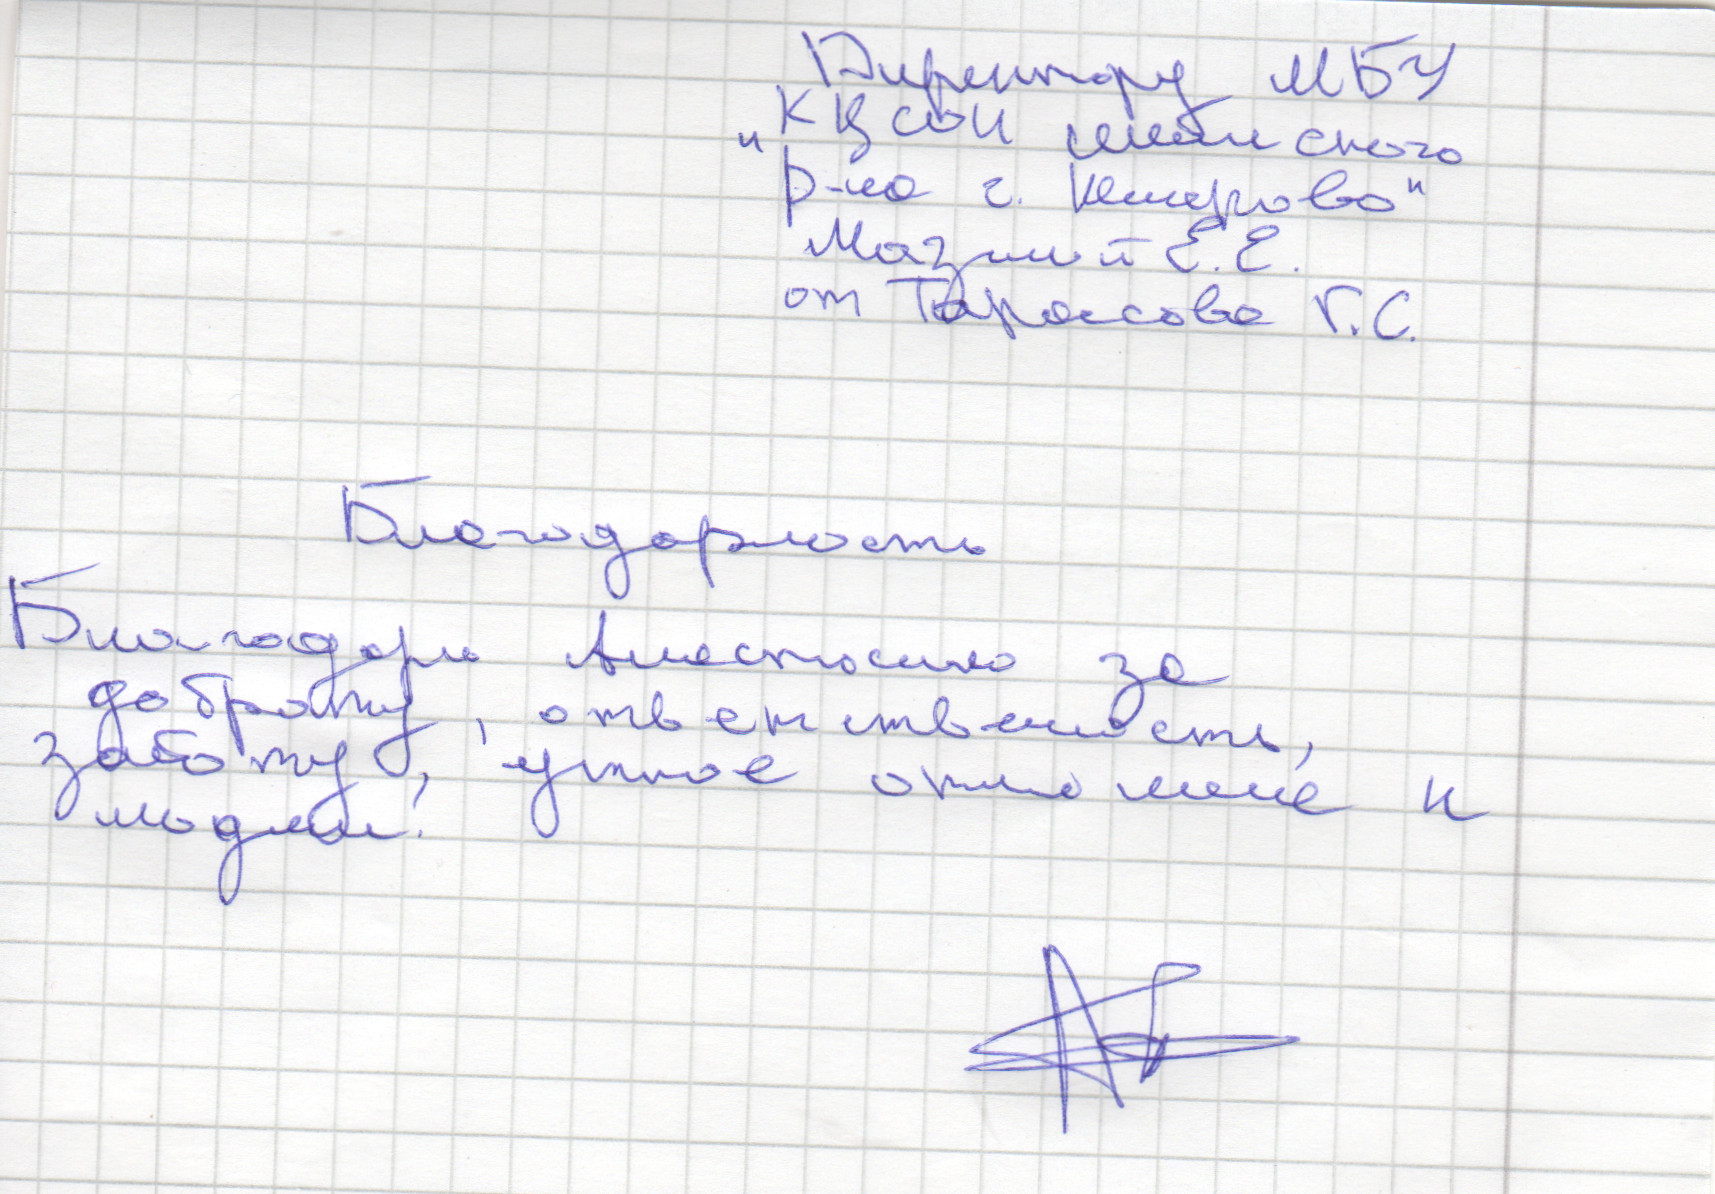 Директору МБУ
"КЦСОН ленинского
р-на г. Кемерово"
Мазний Е.Е.
от Тарасова Г.С.
Благодарность
Благодарю Анастасию за
доброту, ответственность,
заботу, чуткое отношение к
людям!